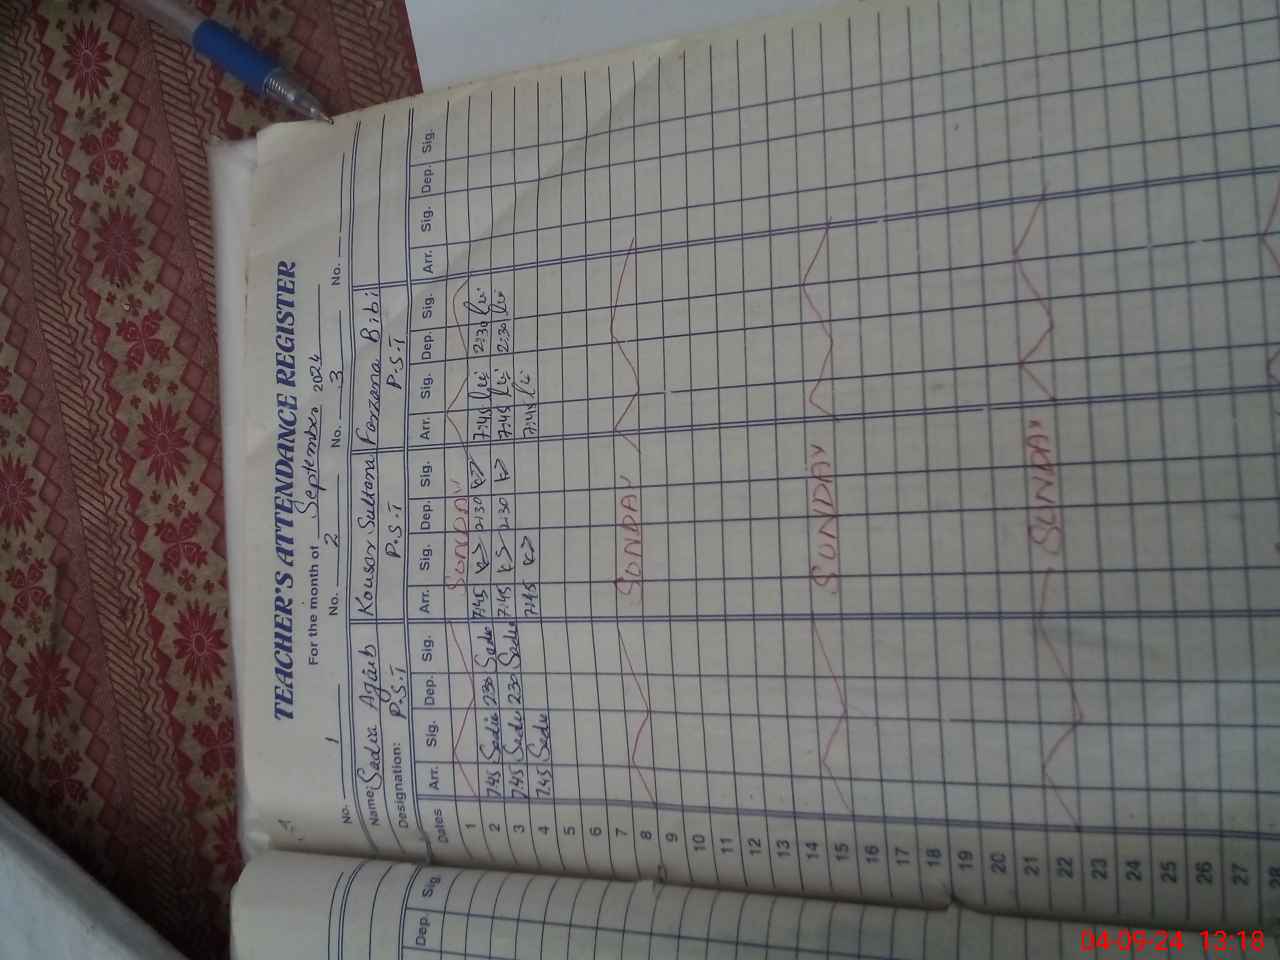 TEACHER'S ATTENDANCE REGISTER
For the month of September 2024
No. 1 No. 2 No. 3 No.
Name: Sadia Aqib Kousar Sultana Farzana Bibi
Designation: P.S.T P.S.T P.S.T
Dates Arr. Sig. Dep. Sig. Arr. Sig. Dep. Sig. Arr. Sig. Dep. Sig. Arr. Sig. Dep. Sig.
1 SUNDAY
2 7:45 Sadia 2:30 Sadia 7:45 2:30 7:45 2:30
3 7:45 Sadia 2:30 Sadia 7:45 2:30 7:45 2:30
4 7:45 Sadia 7:45 7:45
5
6
7
8 SUNDAY
9
10
11
12
13
14
15 SUNDAY
16
17
18
19
20
21
22 SUNDAY
23
24
25
26
27
28
Dep. Sig.
04-09-24 13:18